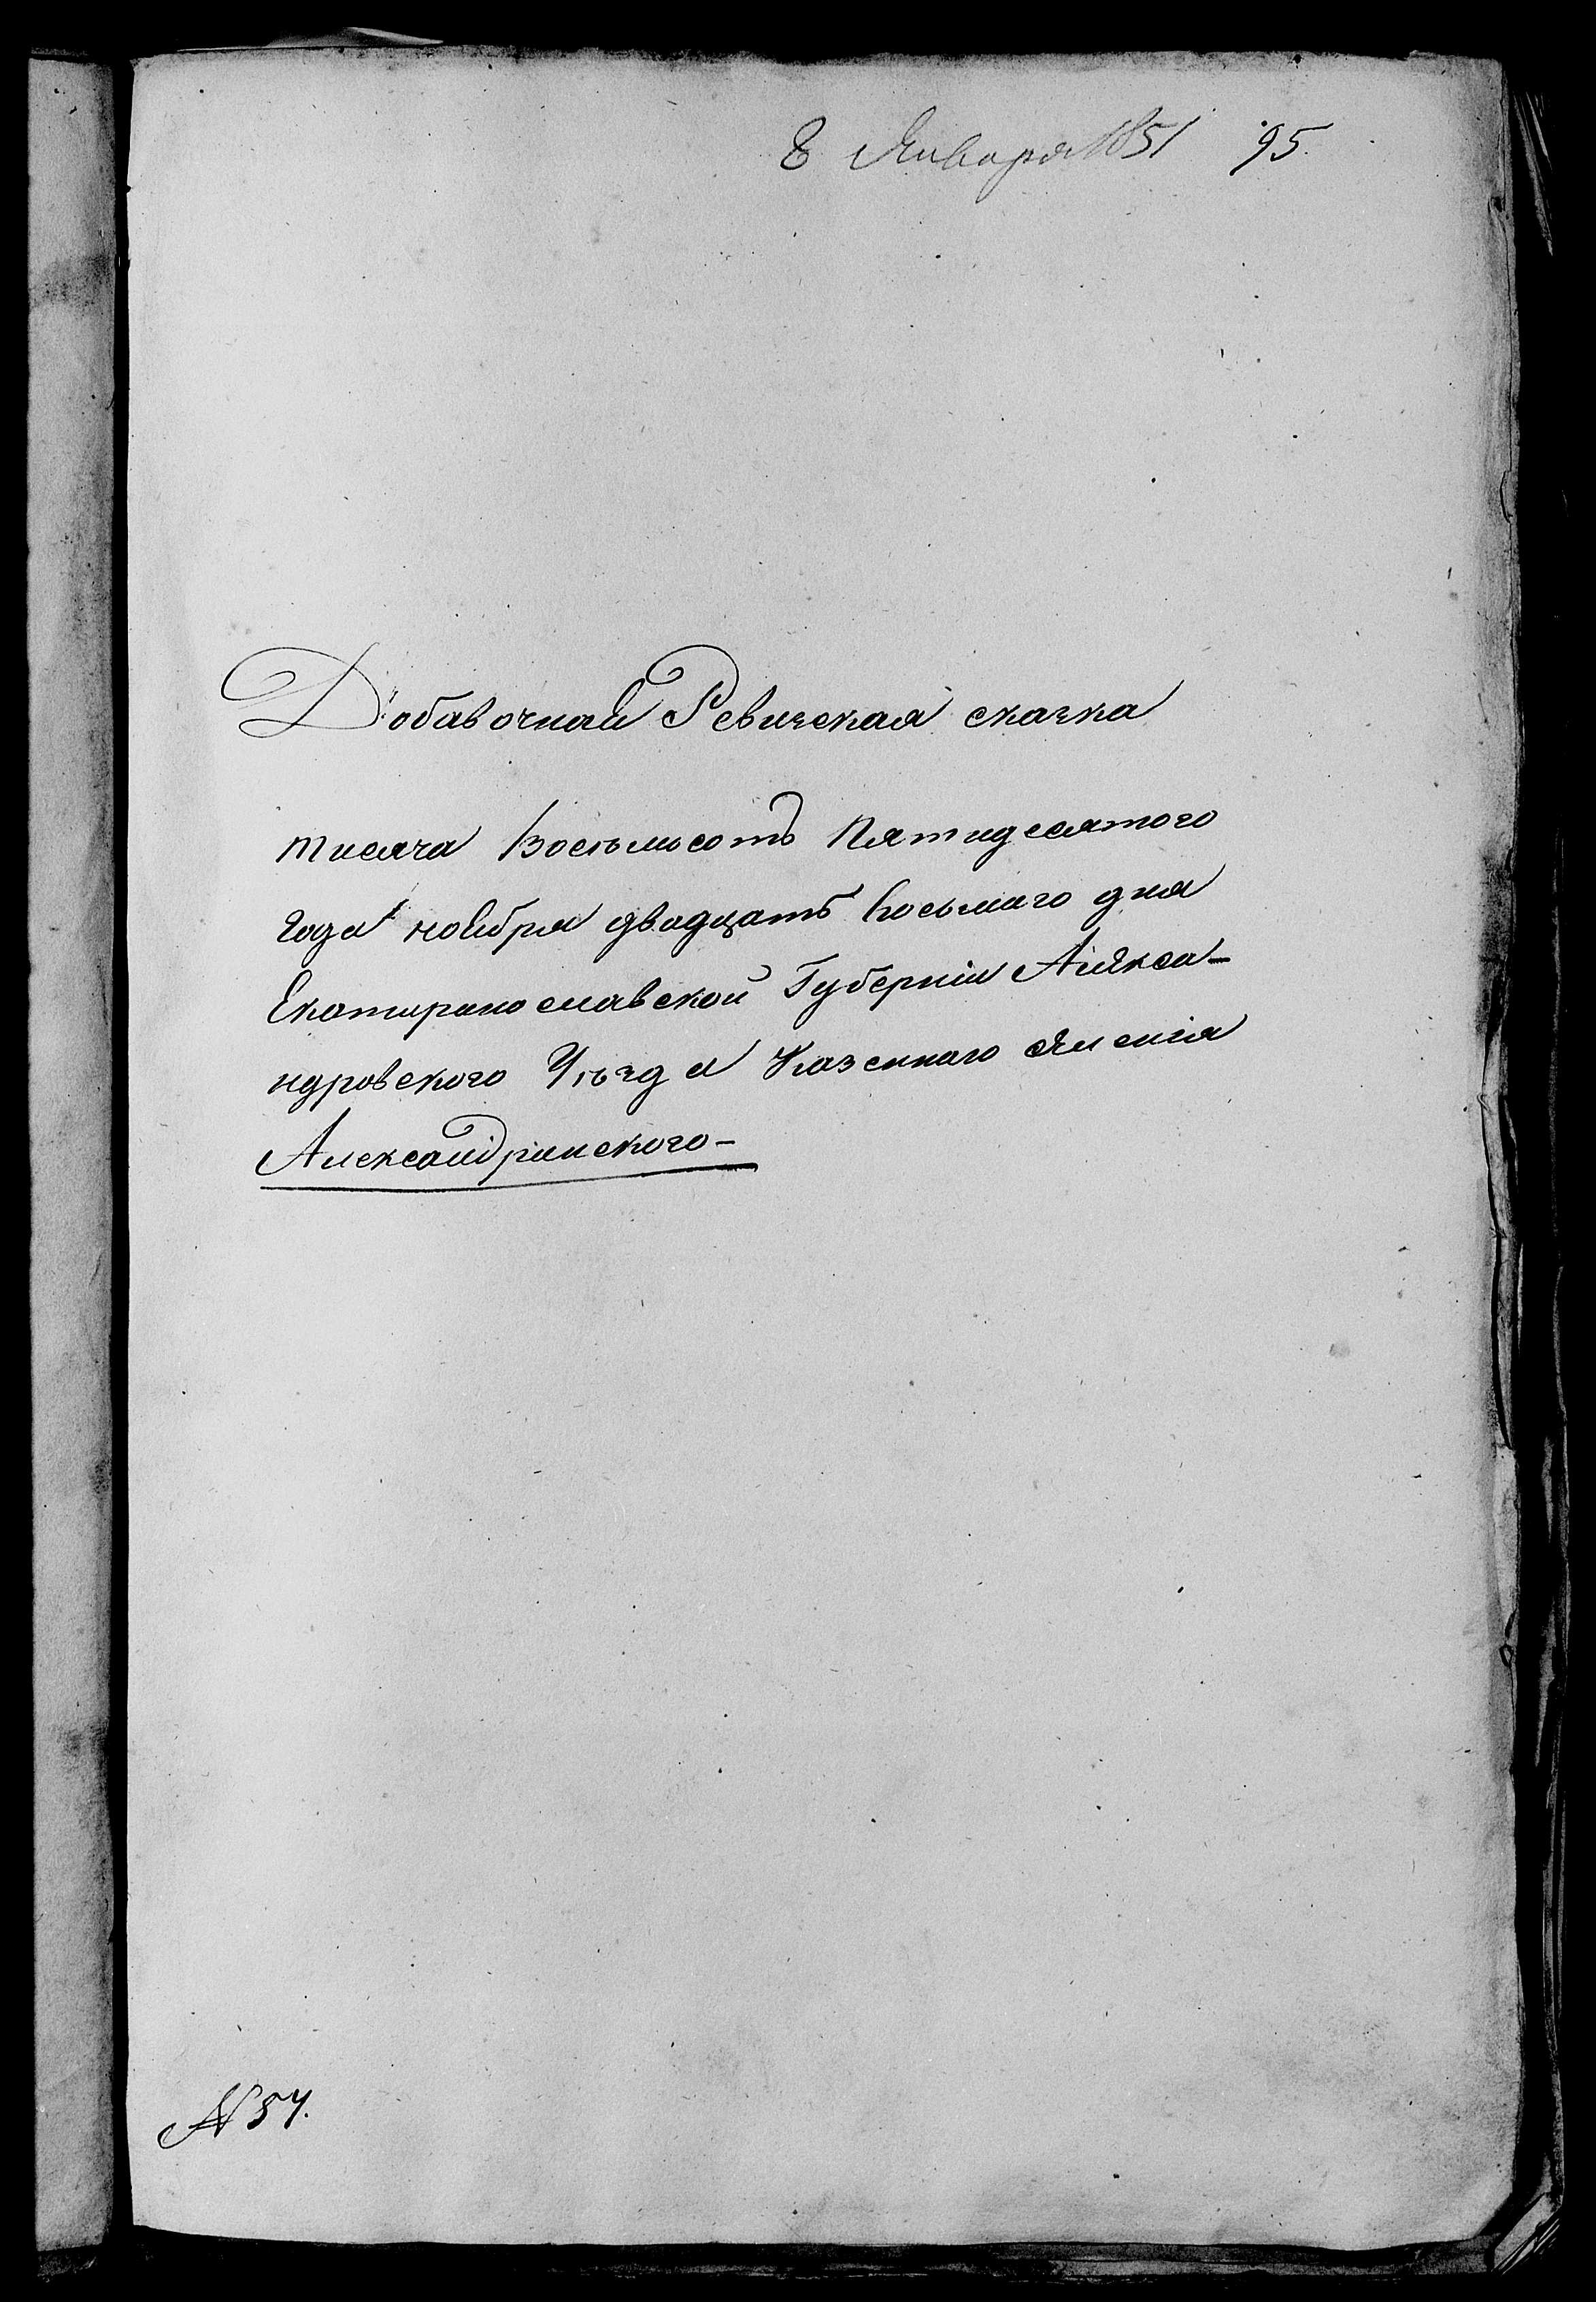 8 Января 1851 95.
Добавочная Ревизская сказка
тисяча Восѣмьсотъ Пятидесятого
Года ноября двадцатъ восьмаго дня
Екатиринославской Губерніи Алѣкса-
ндровского Уѣзда Казеннаго
Александринского-
№ 54.